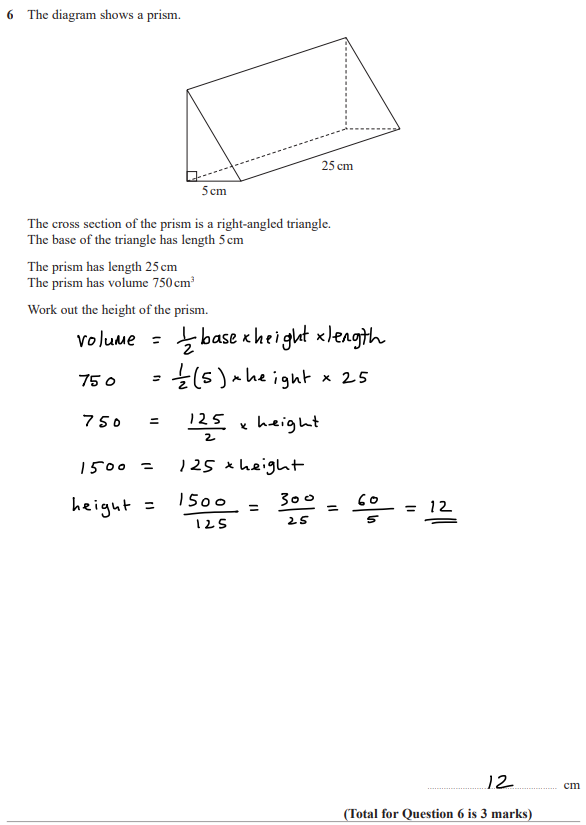 6 The diagram shows a prism.
25 cm
5 cm
The cross section of the prism is a right-angled triangle.
The base of the triangle has length 5 cm
The prism has length 25 cm
The prism has volume 750 cm³
Work out the height of the prism.
volume = 1/2 base × height × length
750 = 1/2 (5) × height × 25
750 = 125/2 × height
1500 = 125 × height
height = 1500/125 = 300/25 = 60/5 = 12
12 cm
(Total for Question 6 is 3 marks)